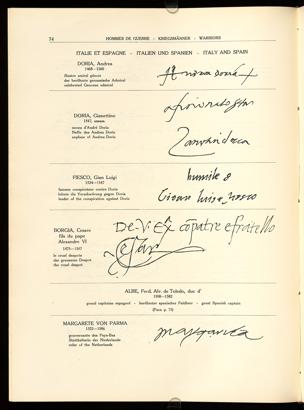 74 HOMMES DE GUERRE - KRIEGSMÄNNER - WARRIORS
ITALIE ET ESPAGNE - ITALIEN UND SPANIEN - ITALY AND SPAIN
DORIA, Andrea
1468—1560
illustre amiral génois
der berühmte genuesische Admiral
celebrated Genoese admiral
DORIA, Gianettino
1547, assass.
neveu d'André Doria
Neffe des Andrea Doria
nephew of Andrea Doria
FIESCO, Gian Luigi
1524—1547
fameux conspirateur contre Doria
leader of the conspiracy against Doria
humile
BORGIA, Cesare
fils du pape
Alexandre VI
le cruel despote
der grausame Despot
the cruel despot
De V. Ex compatre e fratello
Cesar
ALBE, Ferd. Alv. de Toledo, duc d'
1508—1582
grand capitaine espagnol - berühmter spanischer Feldherr - great Spanish captain
MARGARETE VON PARMA
1522—1586
gouvernante des Pays-Bas
Statthalterin der Niederlande
ruler of the Netherlands
margarita